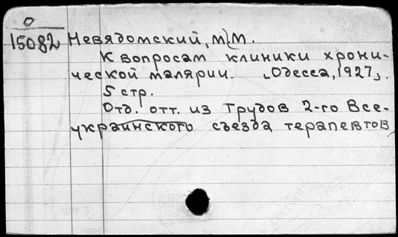 О
15082 Невядомский, М.М.
К вопросам клиники хрони-
ческой малярии. [Одесса, 1927].
5 стр.
Отд. отт. из Трудов 2-го Все-
украинского съезда терапевтов